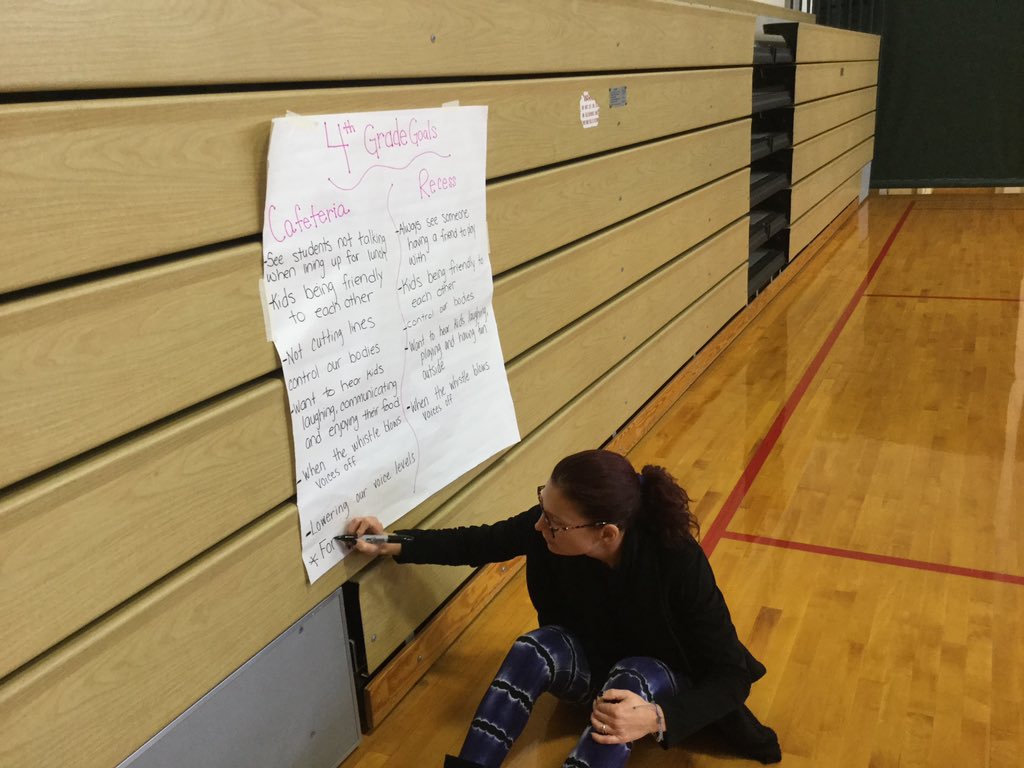 4th Grade Goals
Cafeteria
-See students not talking
when lining up for lunch
-Kids being friendly
to each other
-Not cutting lines
control our bodies
-Want to hear kids
laughing, communicating
and enjoying their food
-When the whistle blows
voices off
-Lowering our voice levels
* For
Recess
-Always see someone
having a friend to play
with
-Kids being friendly to
each other
control our bodies
-Want to hear kids laughing,
playing and having fun
outside
-When the whistle blows
voices off